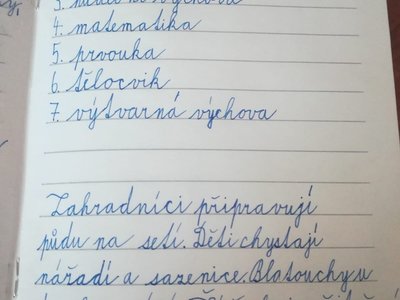 4. matematika
5. prvouka
6. tělocvik
7. výtvarná výchova
Zahradníci připravují
půdu na setí. Děti chystají
nářadí a sazenice. Blatouchy u